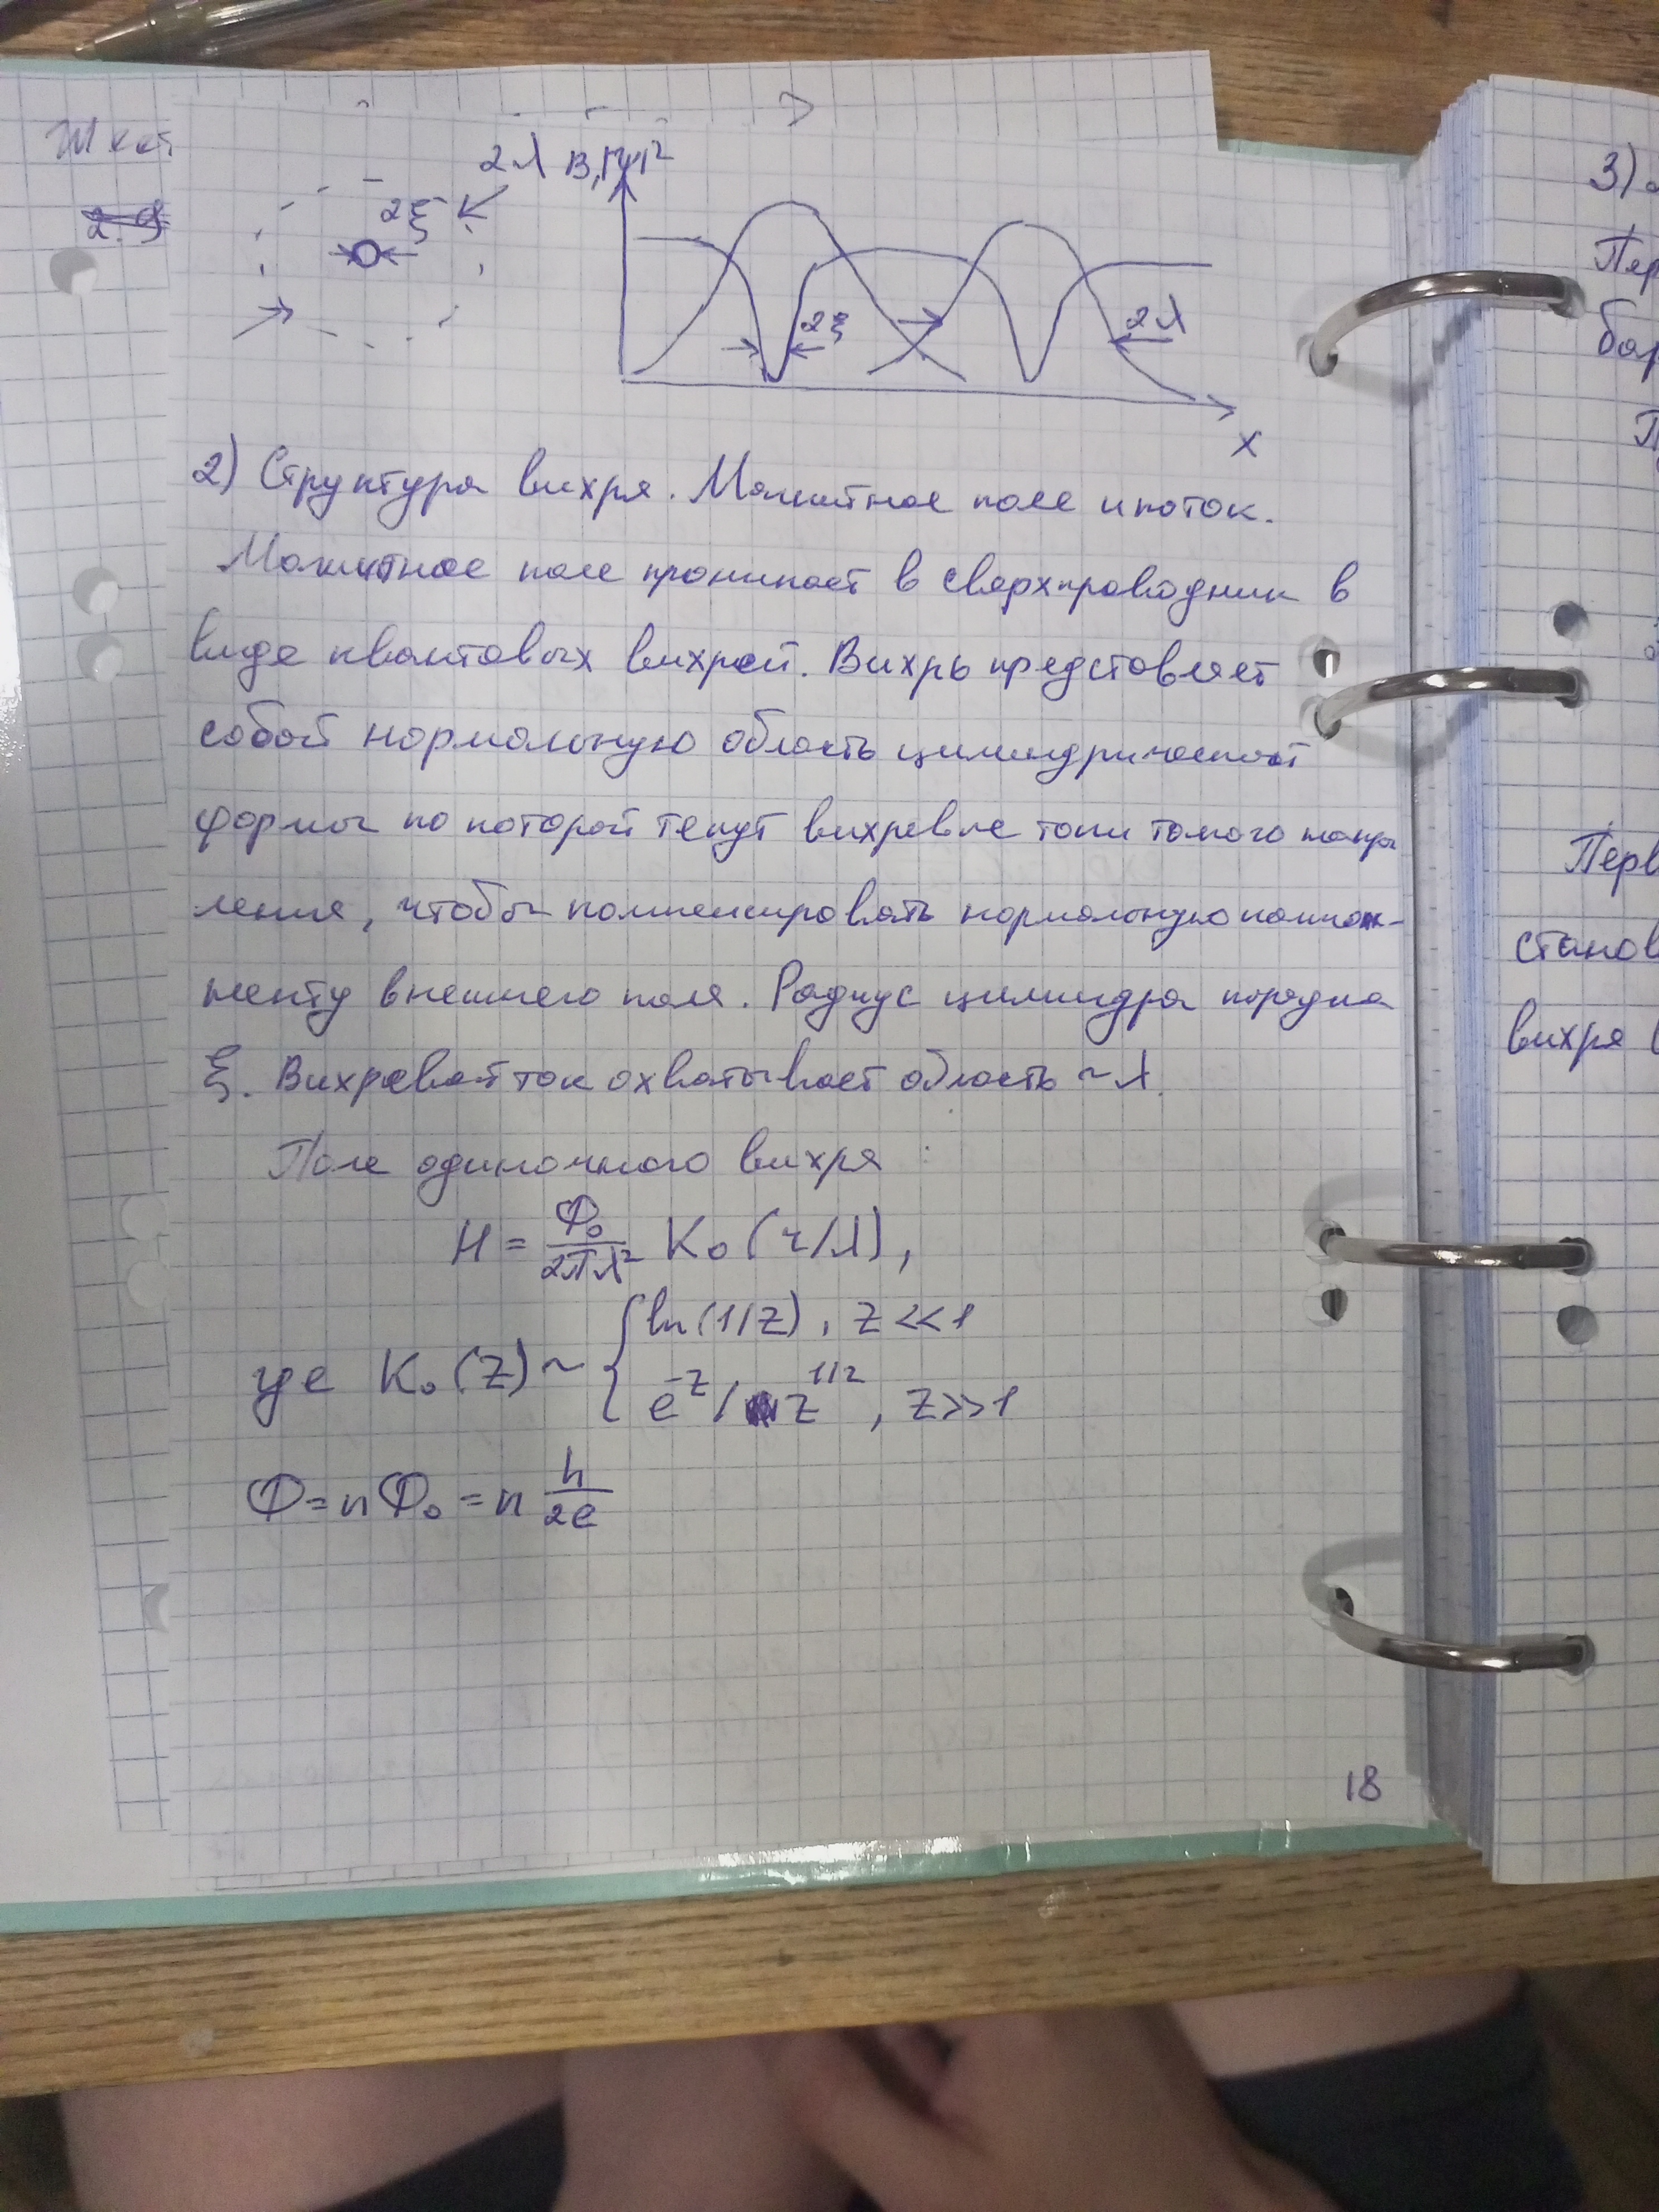 2λ B,|Ψ|²
2ξ
2ξ
2λ
x
2) Структура вихря. Магнитное поле и поток.
Магнитное поле проникает в сверхпроводник в
виде квантовых вихрей. Вихрь представляет
собой нормальную область цилиндрической
формы по которой текут вихревые токи такого направ
ления, чтобы компенсировать нормальную компон-
ненту внешнего поля. Радиус цилиндра порядка
ξ. Вихревой ток охватывает область ~λ.
Поле одиночного вихря:
H = Φ₀/2πλ² K₀(r/λ),
где K₀(z) ~ { ln(1/z), z<<1
e^-z / z^1/2, z>>1
Φ = nΦ₀ = n h/2e
18
3)
Пер
бар
П
Перв
станов
вихря